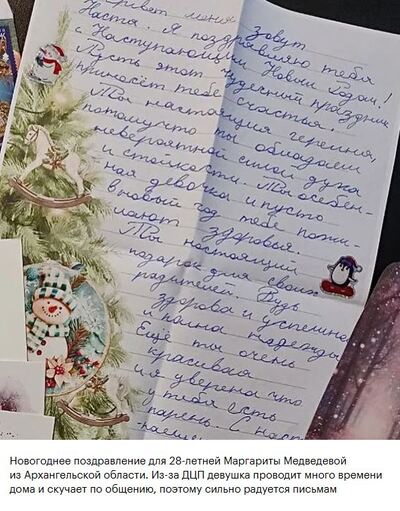 Привет меня
зовут
Настя. Я поздравляю тебя
с Наступающим Новым Годом!
Пусть этот чудесный праздник
принесёт тебе счастья.
Ты настоящая героиня,
потому что ты обладаеш
невероятной силой духа
и стойкости. Ты особен-
ная девочка и пусть
в новый год тебе поже-
лают здоровья.
Ты настоящий
подарок для своих
родителей. Будь
здорова и успешна
и полна надежды
Ещё ты очень
красивая
и я уверена что
у тебя есть
парень. С наст-
Новогоднее поздравление для 28-летней Маргариты Медведевой
из Архангельской области. Из-за ДЦП девушка проводит много времени
дома и скучает по общению, поэтому сильно радуется письмам